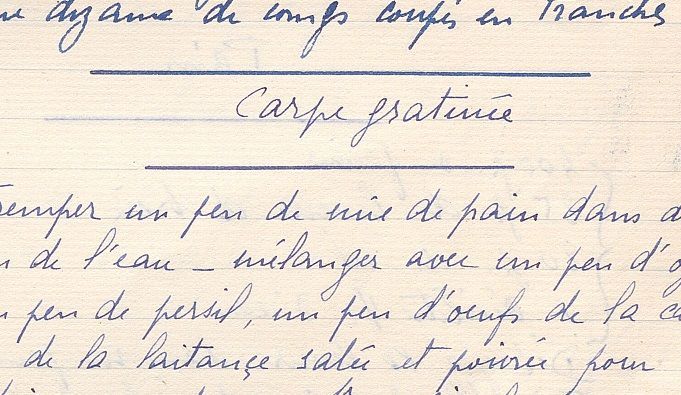 dizaine de coings coupés en Tranches
Carpe gratinée
tremper un peu de mie de pain dans d
de l'eau – mélanger avec un peu d'o
un peu de persil, un peu d'oeufs de la ca
de la laitançe salée et poivrée pour